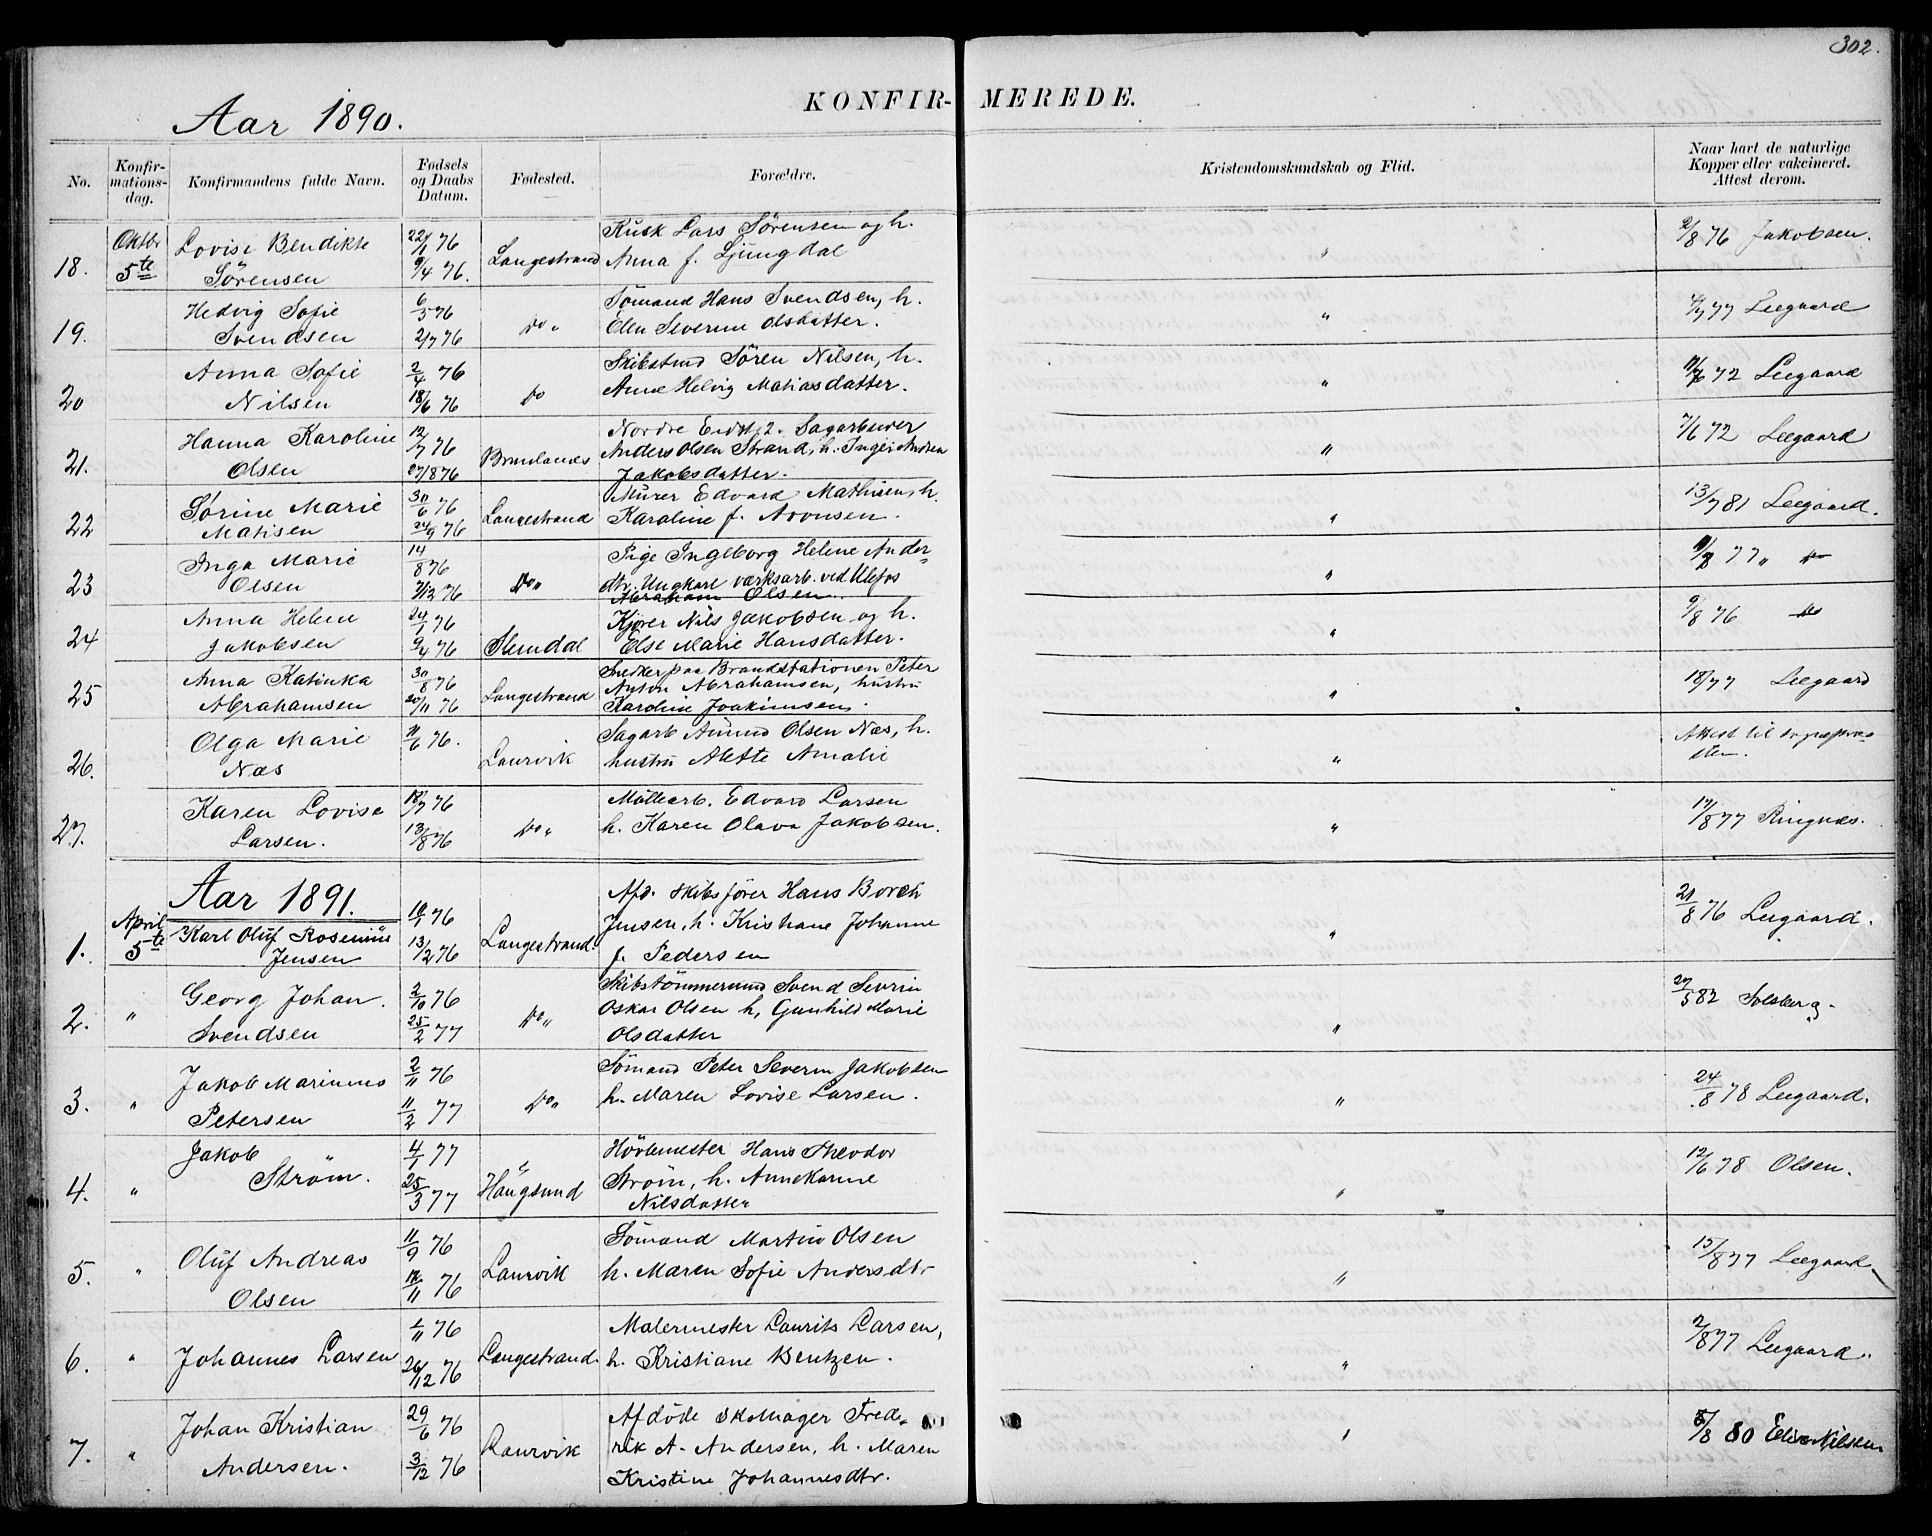 302.
KONFIR- MEREDE.
Aar 1890.
No. Konfir-mations-dag. Konfirmandens fulde Navn. Fødsels og Daabs Datum. Fødested. Forældre. Kristendomskundskab og Flid. Naar havt de naturlige Kopper eller vakcineret. Attest derom.
Oktbr Lovise Bendikte 22/1 76 Kusk Lars Sörensen og h. 9/8 76 Jakobsen.
18. 5te Sörensen 9/4 76. Langestrand Anna f. Ljungdal "
Hedvig Sofie 6/5 76 Sömand Hans Svendsen, h. 77 Leegaard
19. Svendsen 2/7 76 Do " Elen Severine Olsdatter. "
Anna Sofie 2/4 76 Skibstmd Sören Nilsen, h. 72 Leegaard
20 Nilsen 18/6 76 Do Anne Helvig Matiasdatter. "
Hanna Karoline 12/7 76 Nordre Sagarbeider 7/6 72 Leegaard
21. Olsen 27/8 76 Brunlanes Anders Olsen Strand, h. Inger Andrea "
Jakobsdatter.
Sörine Marie 30/6 76 Murer Edvard Mathisen, h. 13/7 81 Leegaard.
22 Matisen 24/9 76 Langestrand Karoline f. Aronsen. "
Inga Marie 14/8 76 Pige Ingeborg Helene Ander- 77 " Do
23 Olsen 76 Do " dtr. Ungkarl værksarb. ved Ulefos "
Abraham Olsen.
Anna Helene 24/1 76 Kjörer Nils Jakobsen og h. 9/8 76 Do
24 Jakobsen 9/4 76 Stendal Else Marie Hansdatter. "
Anna Katinka 30/8 76 Snedker paa Brandstationen Peter 77 Leegaard
25 Abrahamsen 20/11 76 Langestrand Anton Abrahamsen, hustru "
Karoline Joakimsen.
Olga Marie 11/6 76. Sagarb Amund Olsen Næs, h. Attest til
26. Næs Laurvik hustru Alette Amalie "
Karen Lovise 76 Möllearb. Edvard Larsen 17/8 77 Ringnæs.
27. Larsen. 13/8 76 Do " h. Karen Olava Jakobsen. "
Aar 1891.
April Karl Oluf Rosenius 10/1 76 Afd. skibsförer Hans Borch 21/8 76 Leegaard.
1. 5te Jensen 13/2 76 Langestrand. Jensen, h. Kristiane Johanne "
f. Pedersen
Georg Johan 2/10 76 Skibstömmermd Svend Sevrin 27/5 82 Solberg.
2. " Svendsen 25/2 77 Do " Oskar Olsen h, Gunhild Marie "
Olsdatter
Jakob Marinius 2/11 76 Sömand Peter Severin Jakobsen 24/8 78 Leegaard.
3. " Petersen 11/2 77 Do " h. Maren Lovise Larsen. "
Jakob 4/1 77 Hövlemester Hans Theodor 12/6 78 Olsen.
4. " Ström. 25/3 77 Haugsund Ström, h. Anne Karine "
Nilsdatter
Oluf Andreas 11/9 76 Sömand Martin Olsen 15/8 77 Leegaard
5. " Olsen 12/11 76 Laurvik h. Maren Sofie Andersdtr "
1/11 76 Malermester Laurits Larsen, 2/8 77 Leegaard.
6. " Johannes Larsen 26/12 76 Langestrand. h. Kristiane Bentzen. "
Johan Kristian 29/6 76 Afdöde skomager Fred- 80 Elise Nilsen
7. " Andersen. 3/12 76 Laurvik rik A. Andersen, h. Maren "
Kristine Johannesdtr.